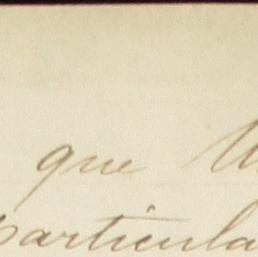 que
particula